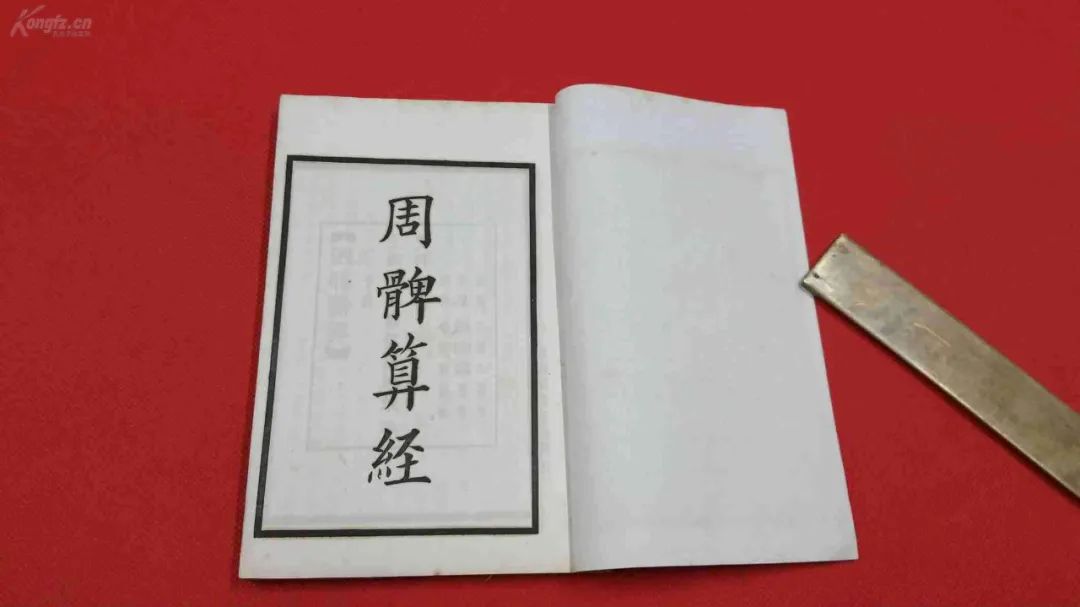 Kongfz.cn
周髀算経